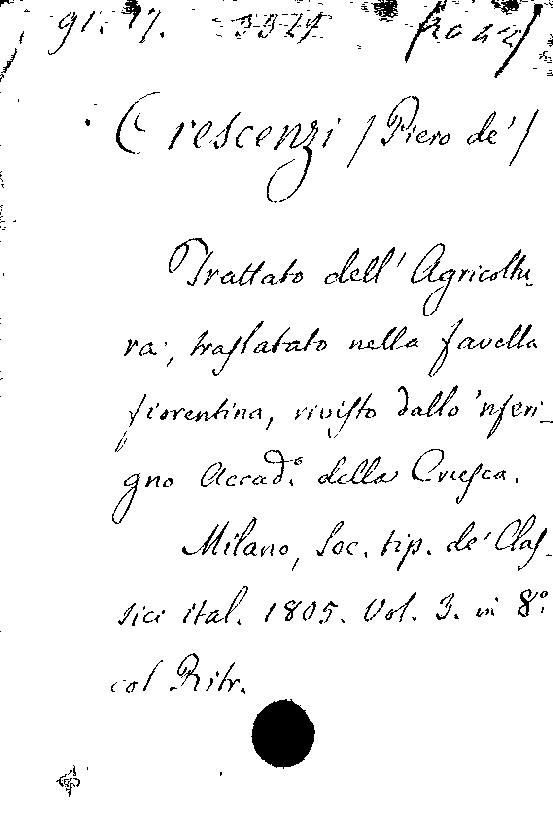 91. 17.
Crescenzi / Piero de' /
Trattato dell' Agricoltu_
ra, traslatato nella favella
fiorentina, rivisto dallo 'nferi_
gno Accad.º della Crusca.
Milano, Soc. tip. de' Clas_
sici ital. 1805. Vol. 3. in 8º.
col Ritr.